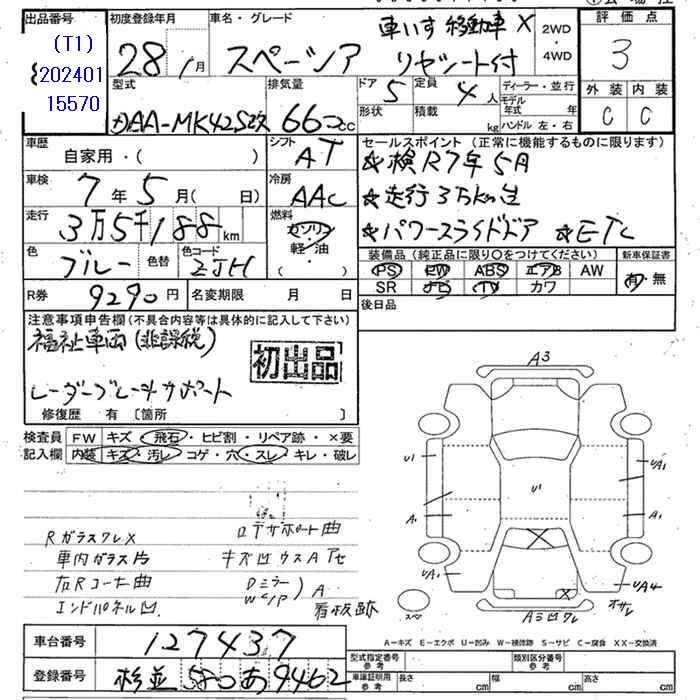 出品番号
(T1)
202401
15570
初度登録年月
28年1月
車名・グレード
スペーシア
車いす移動車
リヤシート付
2WD
・
4WD
評価点
3
型式
DAA-MK42S改
排気量
660cc
ドア
5
形状
定員
4人
積載
kg
ディーラー・並行
モデル年式 年
ハンドル 左・右
外装 内装
C C
車歴
自家用・( )
シフト
AT
セールスポイント (正常に機能するものに限ります)
☆検R7年5月
☆走行3万km台
☆パワースライドドア ☆ETC
車検
7年5月( 日)
冷房
AAC
走行
3万5千188km
燃料
ガソリン
軽・油
( ・ )
色
ブルー
色替
色コード
ZJH
装備品(純正品に限り○をつけてください)
PS PW ABS エアB AW
SR ナビ TV カワ
新車保証書
有・無
R券
9290円
名変期限 月 日
後日品
注意事項申告欄(不具合内容等は具体的に記入して下さい)
福祉車両(非課税)
初出品
レーダーブレーキサポート
修復歴 有 〔箇所 〕
検査員
記入欄
FW キズ・飛石・ヒビ割・リペア跡・×要
内装 キズ・汚レ・コゲ・穴・スレ・キレ・破レ
Rガラスワレ×
車内ガラス片
左Rコーナー曲
エンドパネル凹
ロアサポート曲
キズ凹ウスAアセ
Dミラー
WC/P
A
看板跡
A3
U1
A1
U1
UA1
A1
UA1
UA4
サビ
スペア
A3凹ワレ
A-キズ E-エクボ U-凹み W-補修跡 S-サビ C-腐食 XX-交換済
車台番号
127437
登録番号
杉並 580 あ 9462
型式指定番号
参考
類別区分番号
参考
車庫証明用
参考
長さ cm
幅 cm
高さ cm